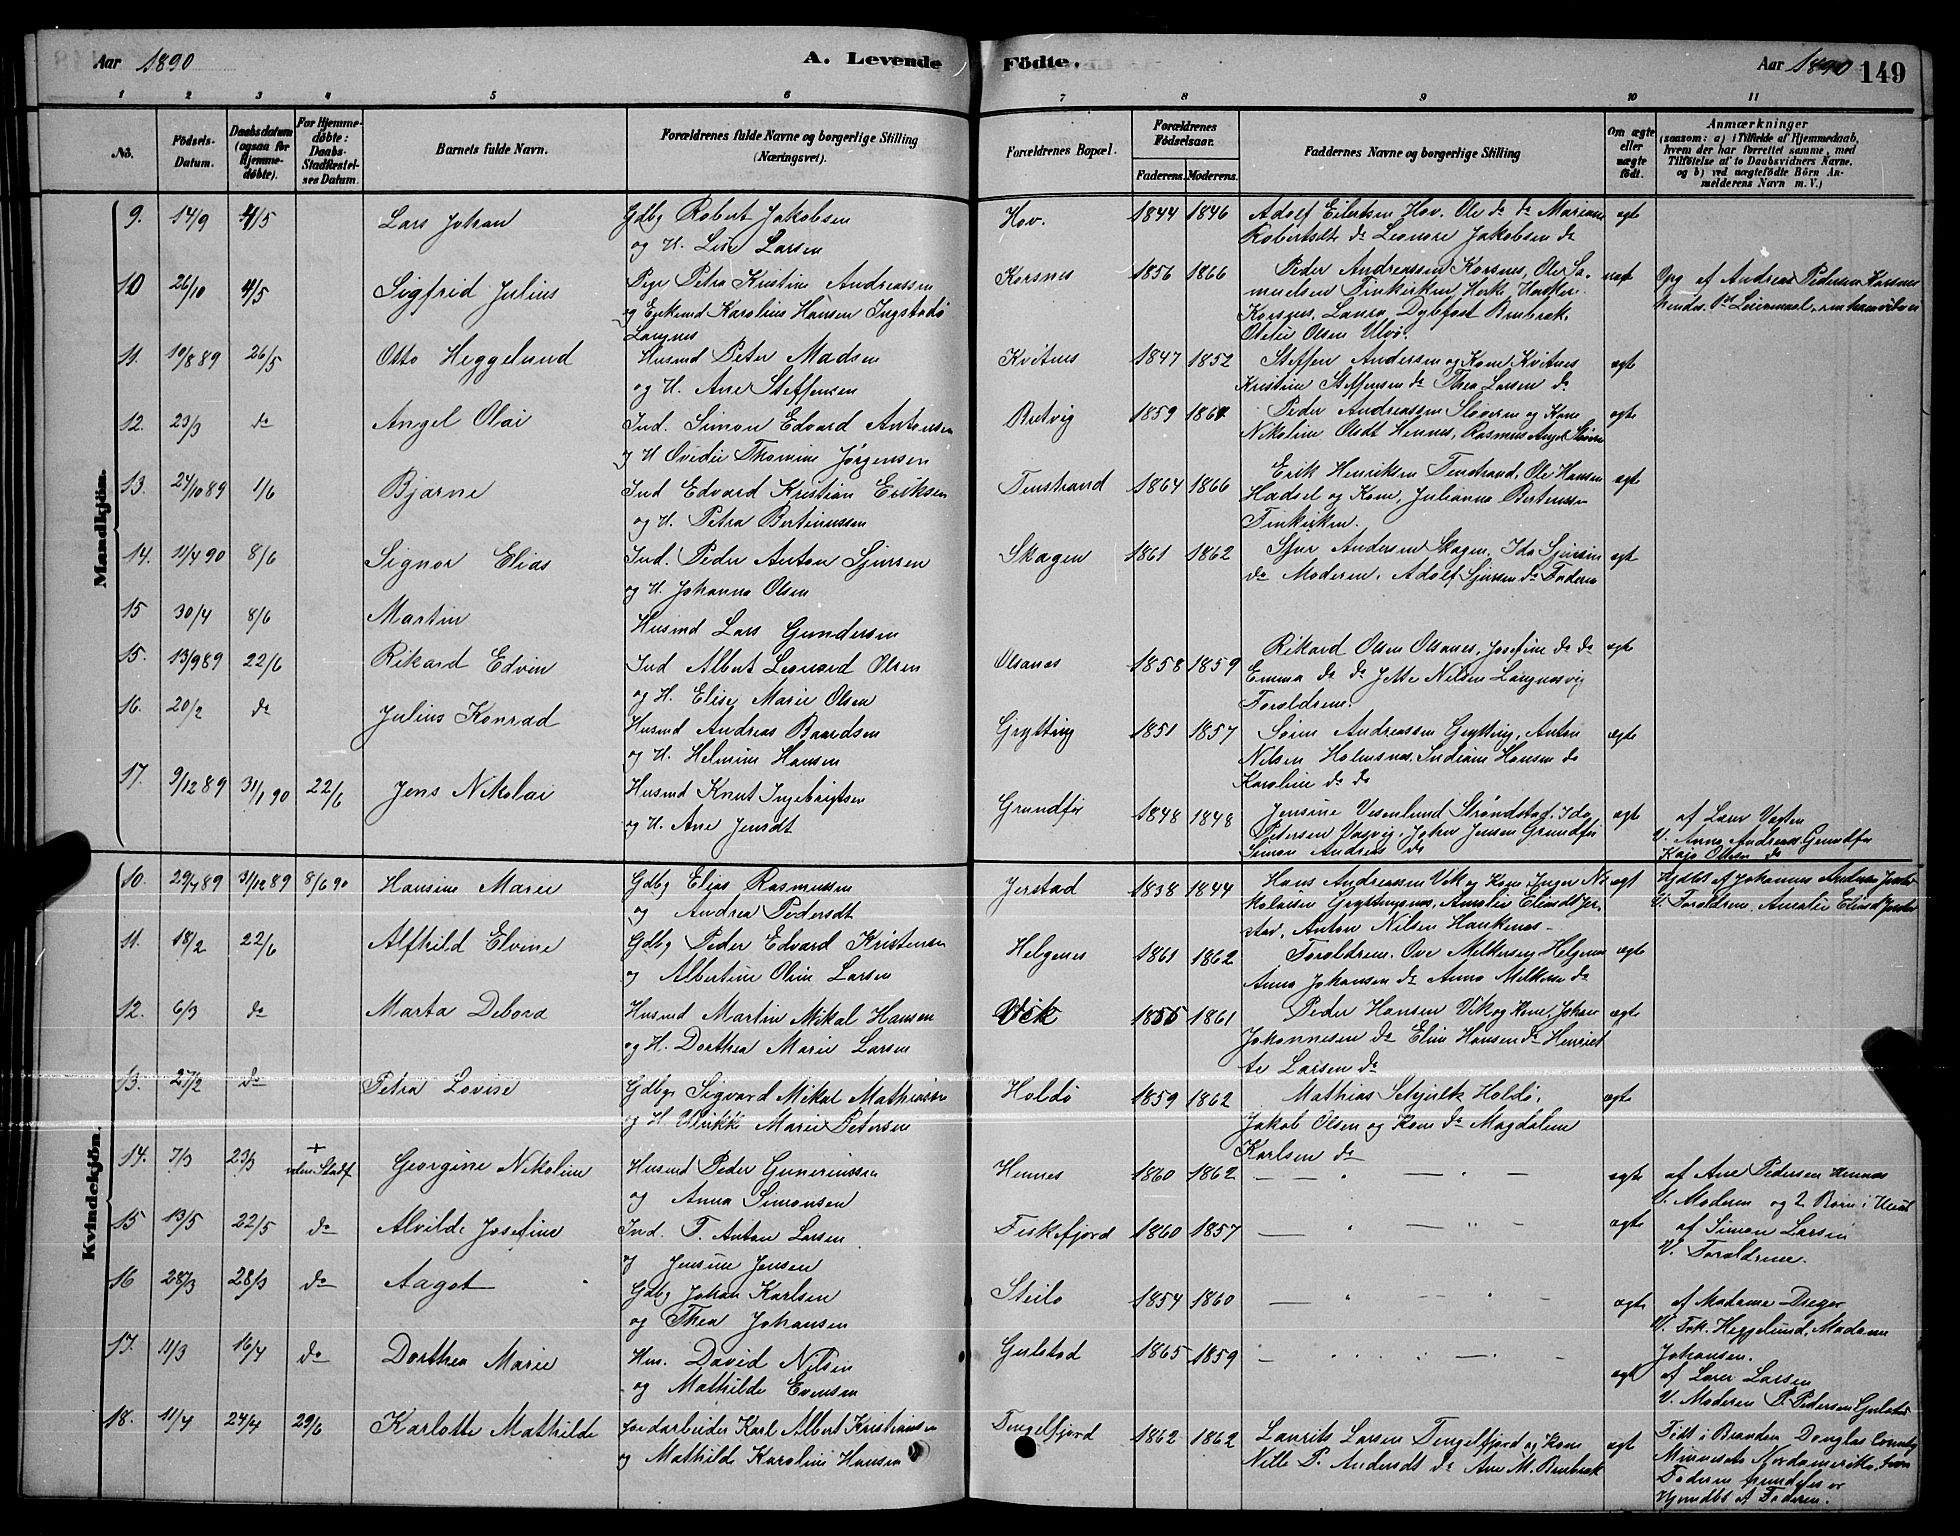 Aar 1890
A. Levende Fødte.
Aar 1890 149
1 2 3 4 5 6 7 8 9 10 11
No. Fødsels-Datum. Daabsdatum (ogsaa for Hjemmedøbte). For Hjemmedøbte: Daabs-Stadfæstelses Datum. Barnets fulde Navn. Forældrenes fulde Navne og borgerlige Stilling (Næringsvei). Forældrenes Bopæl. Forældrenes Fødselsaar. Faderens. Moderens. Faddernes Navne og borgerlige Stilling Om ægte eller uægte født. Anmærkninger (saasom: a) i Tilfælde af Hjemmedaab, hvem der har forrettet samme, med Tilføielse af to Daabsvidners Navne, og b) ved uægtefødte Børn Anmelderens Navn m. V.)
Mandkjøn.
9. 14/9 4/5 Lars Johan Gdbg Robert Jakobsen Hov. 1844 1846 Adolf Eilertsen Hov. Ole do do Mariane ægte
og H. Lise Larsen Robertsdt do Leonore Jakobsen do
10 26/10 4/5 Sigfrid Julius Pige Petra Kristine Andreassen Korsnes 1856 1866 Peder Andreassen Korsnes, Ole Sa- uægt Opg af Andreas Pedersen Korsnes
og Enkemd Karolius Hansen Ingstadø muelsen Finkirken
Langnes Korsnes, Laura Dybfest Brubrak,
Otelie Olsen Ulvø.
11. 10/8 89 26/5 Otto Heggelund Husmd Peter Madsen Kvitnes 1847 1852 Steffen Andersen og Kone Kvitnes ægte
og H. Ane Steffensen Kristine Steffensen do Thea Larsen do
12. 23/3 do Angel Olai Ind. Simon Edvard Antonsen Butvig 1859 Peder Andreassen Sloveren og Kone ægte
og H Ovidie Thomine Jørgensen Nikoline Olsdt Hennes, Rasmus Angel
13. 24/10 89 1/6 Bjarne Ind Edvard Kristian Eriksen Finstrand 1864 1866 Erik Henriksen Finstrand, Ole Hansen ægte
og H. Petra Bertinussen Hadsel og Kone, Julianna Bertenssen
Finkirken.
14. 11/4 90 8/6 Signor Elias Ind. Peder Anton Sjursen Skagen 1861 1862 Sjur Andersen Skagen, Ida Sjursen ægte
og H. Johanna Olsen do Moderen, Adolf Sjursen do Faderen
15 30/4 8/6 Martin Husmd Lars Gundersen
15. 13/9 89 22/6 Rikard Edvin Ind Albert Leonard Olsen Olsanes 1858 1859 Rikard Olsen Olsanes, Josefine do do ægte
og H. Elise Marie Olsen Emma do do Jette Nilsen Langnesvig
Foreldrene.
16. 20/2 do Julius Konrad Husmd Andreas Baardsen Grytting 1851 1857 Søren Andreassen Grytting, Anton ægte
og H. Helmine Hansen Nilsen Holmsnes, Indiane Hansen do
Karoline do do
17. 9/12 89 31/1 90 22/6 Jens Nikolai Husmd Knut Ingebrigtsen Grundfør 1848 1848 Jensine Vesenlund Strøndstad, Ida ægte af Laur Vasten
og H. Ane Jensdt Petersen Vasvig, Johan Jensen Grundfør V. Anna Andreas Grundfør
Simon Andreas do Kaja Ottesen do
Kvindekjøn.
10. 29/4 89 31/12 89 8/6 90 Hansine Marie Gdbg Elias Rasmussen Jerstad 1838 1844 Hans Andreassen Vik og Kone, Inger Ni- ægt Hjdbt af Johannes Andersen Jerstad
og Andrea Pedersdt kolaisen Gryttingsnes, Amalie Eliasdt Jer- V. Foreldrene, Amalie Eliasd Jerstad
stad, Anton Nilsen Haukenes
11. 18/2 22/6 Alfhild Elvine Gdbg Peder Edvard Kristensen Helgenes 1861 1862 Foreldrene, Ove Melkersen Helgenes ægte
og Albertine Oline Larsen Anna Johansen do Anna Melkersen do
12. 6/3 do Marta Debora Husmd Martin Mikal Hansen Vik 1855 1861 Peder Hansen Vik og Kone, Johan ægte
og H. Dorthea Marie Larsen Johannesen do Eline Hansen do Henriet
te Larsen do
13. 27/2 do Petra Lovise Gdbg Sigvard Mikal Mathiassen Holdø 1859 1862 Mathias Holdø, ægte
og H Ulrikke Marie Petersen Jakob Olsen og Kone do Magdalene
Karlsen do
14. 7/3 23/3 + uden Stadf Georgine Nikoline Husmd Peder Guneriussen Hennes 1860 1862 — — " — " — ægte af Ane Pedersen Hennes
og Anna Simonsen V. Moderen og 2 Børn i Huset
15 13/5 22/5 do Alvilde Josefine Ind. P. Anton Larsen Fiskefjord 1860 1857 — " — " — ægte af Simon Larsen
og Jensine Jensen V. Foreldrene.
16 28/3 28/3 do Aagot Gdbg Johan Karlsen Steilo 1854 1860 — " — " — ægte af Madame Dreyer
og Thea Johansen V. Frk. Heggelund, Madame
Johansen.
17. 11/3 16/4 do Dorthea Marie Hm. David Nilsen Gulstad 1865 1859 — — — ægt af Laur Larsen
og Mathilde Evensen V. Moderen P. Pedersen Gulstad
18. 11/4 24/4 29/6 Karlotte Mathilde Jordarbeider Karl Albert Kristiansen Tengelfjord 1862 1862 Laurits Larsen Tengelfjord og Kone ægt Født i Brandon Douglas County
og Mathilde Karoline Hansen Nille P. Andersdt do Ane M. Brubrak Minnesota Nordamerika,
Faderen
Hjemdbt af Faderen.